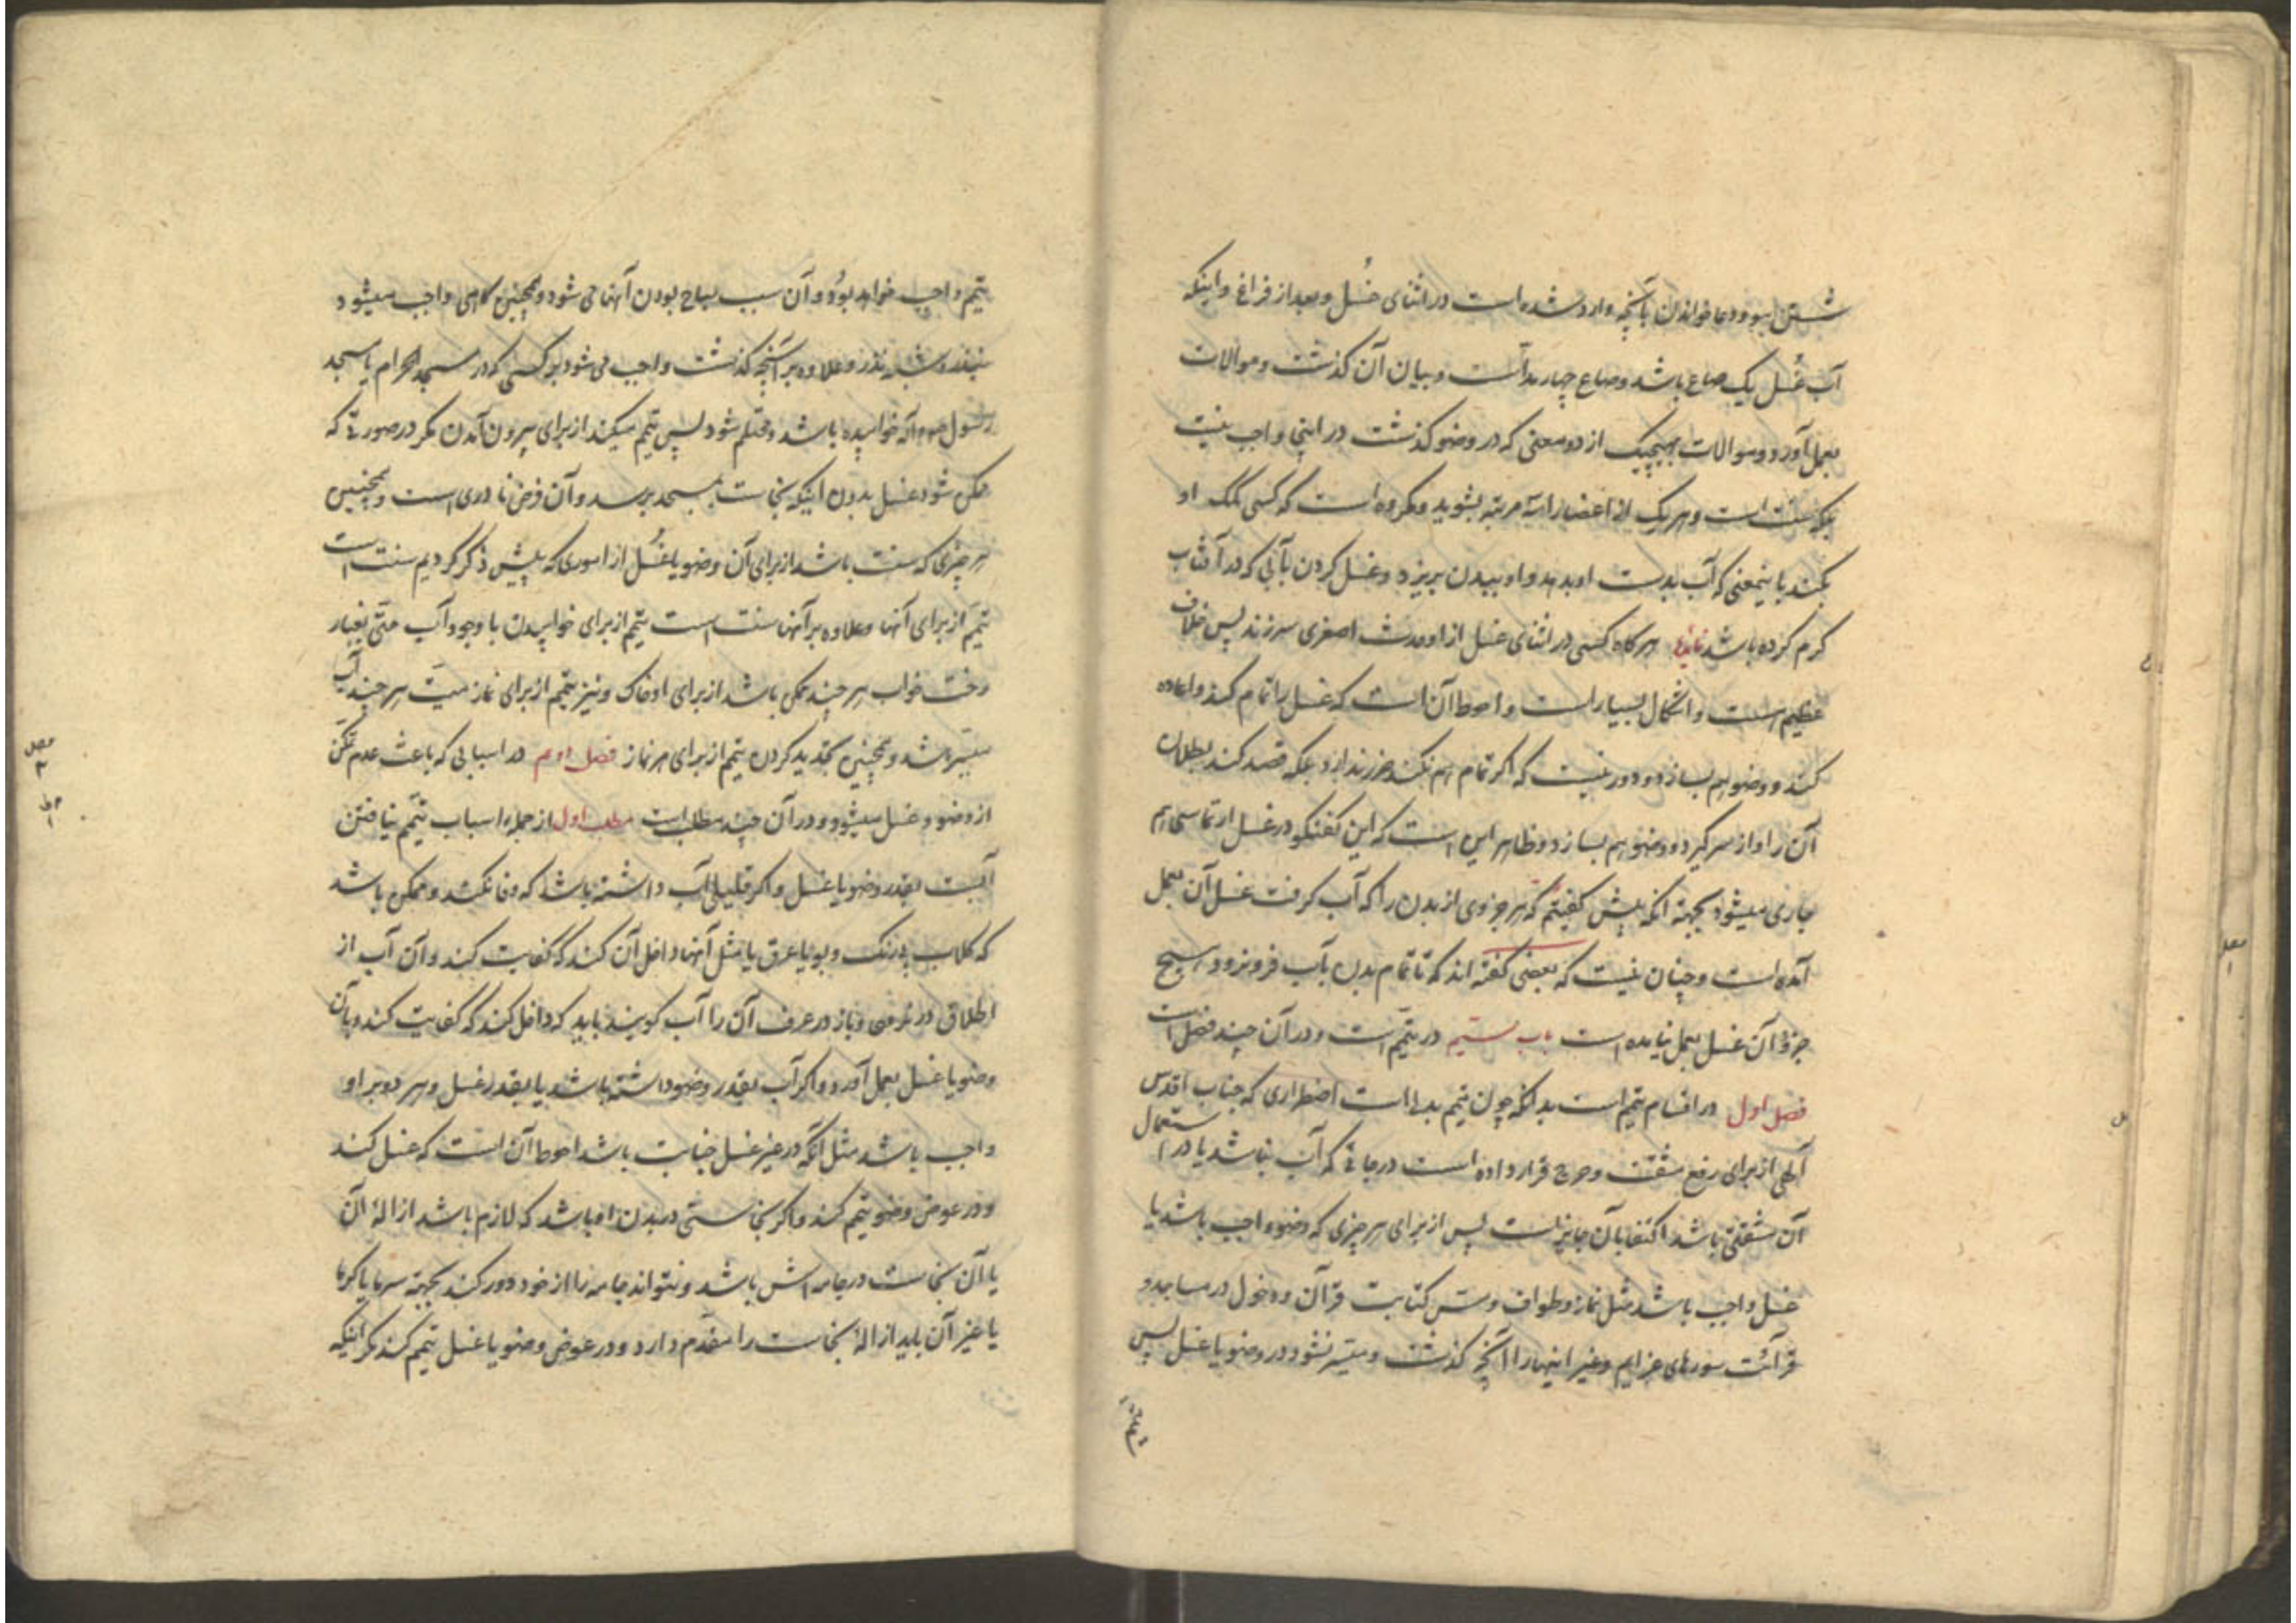 شستن ابرو و دعا خواندن بآنچه وارد شده است در اثنای غُسل و بعد از فراغ و اینکه
آب غُسل یک صاع باشد و صاع چهار مدّ است و بیان آن گذشت و موالات
بعمل آورد و موالات بهیچیک از دو معنی که در وضو گذشت در اینجا واجب نیست
بلکه سنت است و هر یک از اعضا را سه مرتبه بشوید و مکروه است که کسی کمک او
بکند باینمعنی که آب بدست او بدهد و او ببدن بریزد و غسل کردن بآبی که در آفتاب
کرم کرده باشد هر کاه کسی در اثنای غسل از او حدث اصغری سر زند پس خلاف
عظیم است و اشکال بسیار است و احوط آن است که غسل را تمام کند و اعاده
کند و وضو هم بسازد و دور نیست که اکر تمام هم نکند ضرر ندارد بلکه قصد کند بطلان
آن را و از سر کیرد و وضو هم بسازد و ظاهر این است که این کفتکو در غسل ارتماسی هم
جاری میشود بجهة آنکه پیش کفتیم که هر جزوی از بدن را که آب کرفت غسل آن بعمل
آمده است و چنان نیست که بعضی کفته اند که تا تمام بدن بآب فرو نرود هیچ
جزؤ آن غسل بعمل نیامده است باب در تیمّم است و در آن چند فصل است
فصل اول در اقسام تیمم است بدانکه چون تیمم بدلی است اضطراری که جناب اقدس
آلهی از برای رفع مشقت و حرج قرار داده است در جائی که آب نباشد یا در استعمال
آن مشقتی باشد اکتفا بآن جایز است پس از برای هر چیزی که وضو واجب باشد یا
غسل واجب باشد مثل نماز و طواف و مسّ کتابت قرآن و دخول در مساجد و
قرائت سورهای عزایم و غیر اینها را آنچه گذشت و میسر نشود در وضو یا غسل پس
تیمم واجب خواهد بوُد و آن سبب مباح بودن آنها می شود و همچنین کاهی واجب میشود
بنذر و شبه نذر و علاوه بر آنچه گذشت واجب می شود بر کسی که در مسجد الحرام یا مسجد
رسول خوابیده باشد و محتلم شود پس تیمم میکند از برای بیرون آمدن مکر در صورتی که
ممکن شود غسل بدون اینکه نجاست بمسجد برسد و آن فرض نادری است و همچنین
هر چیزی که سنت باشد از برای آن وضو یا غُسل از اموری که پیش ذکر کردیم سنت است
تیمّم از برای آنها و علاوه بر آنها سنت است تیمم از برای خوابیدن با وجود آب حتّی بغبار
رخت خواب هر چند ممکن باشد از برای او خاک و نیز تیمم از برای نماز میّت هر چند آب
میّسر باشد و همچنین تجدید کردن تیمم از برای هر نماز فصل دوم در اسبابی که باعث عدم تمکّن
از وضو و غسل میشود و در آن چند مطلب است مطلب اول از جمله اسباب تیمّم نیافتن
آبست بقدر وضو یا غسل و اکر قلیلی آب داشته باشد که وفا نکند و ممکن باشد
که کلاب بی رنک و بو یا عرق یا مثل آنها داخل آن کند که کفایت کند و آن آب از
اطلاق در نرود و باز در عرف آن را آب کویند باید که داخل کند که کفایت کند و بآن
وضو یا غسل بعمل آورد و اکر آب بقدر وضو داشته باشد یا بقدر غسل و هر دو بر او
واجب باشد مثل آنکه در غیر غسل جنابت باشد احوط آن است که غسل کند
و در عوض وضو تیمم کند و اکر نجاستی در بدن او باشد که لازم باشد ازالهٔ آن
یا آن نجاست در جامه اش باشد و نتواند جامه را از خود دور کند بجهة سرما یا کرما
یا غیر آن باید ازالهٔ نجاست را مقدّم دارد و در عوض وضو یا غسل تیمم کند مکر اینکه